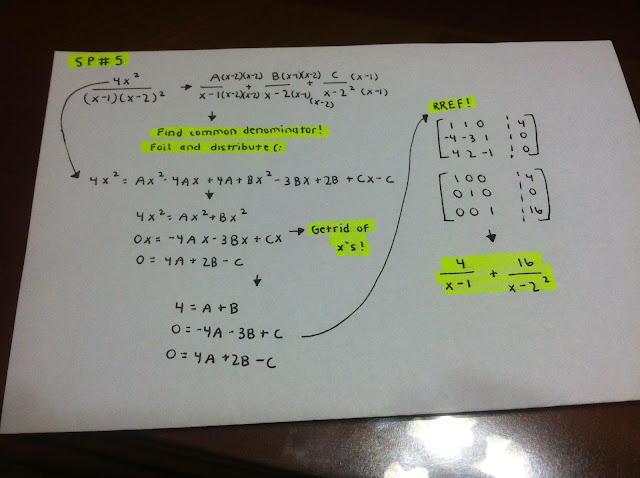 SP#5
4x² / (x-1)(x-2)² → A(x-2)(x-2) / x-1(x-2)(x-2) + B(x-1)(x-2) / x-2(x-1)(x-2) + C (x-1) / x-2² (x-1)
Find common denominator!
Foil and distribute (:
4x² = Ax² - 4Ax + 4A + Bx² - 3Bx + 2B + Cx - C
4x² = Ax² + Bx²
0x = -4Ax - 3Bx + Cx → Get rid of
x's!
0 = 4A + 2B - C
4 = A + B
0 = -4A - 3B + C
0 = 4A + 2B - C
RREF!
1 1 0 4
-4 -3 1 0
4 2 -1 0
1 0 0 4
0 1 0 0
0 0 1 16
4 / x-1 + 16 / x-2²